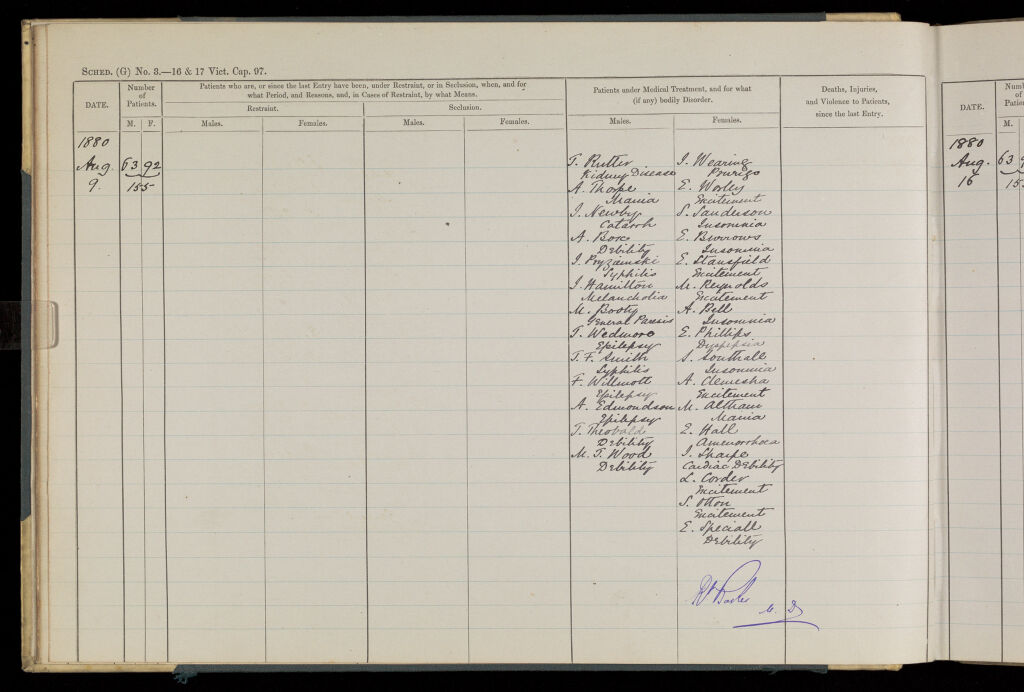 SCHED. (G) No. 3.—16 & 17 Vict. Cap. 97.
DATE.
Number of Patients.
M. F.
Patients who are, or since the last Entry have been, under Restraint, or in Seclusion, when, and for
what Period, and Reasons, and, in Cases of Restraint, by what Means.
Restraint.
Seclusion.
Males.
Females.
Males.
Females.
Patients under Medical Treatment, and for what
(if any) bodily Disorder.
Males.
Females.
Deaths, Injuries,
and Violence to Patients,
since the last Entry.
1880
Aug. 63 92
9. 155
T. Rutter
Kidney Disease
A. Thorpe
Mania
J. Newby
Catarrh
A. Box
Debility
J. Pryzamski
Syphilis
J. Hamilton
Melancholia
M. Booty
General Paresis
T. Wedmore
Epilepsy
T. F. Smith
Syphilis
F. Willmott
Epilepsy
A. Edmondson
Epilepsy
T. Theobald
Debility
M. T. Wood
Debility
J. Wearing
Prurigo
E. Worley
Excitement
S. Sanderson
Insomnia
E. Burrows
Insomnia
E. Stansfield
Excitement
M. Reynolds
Excitement
A. Bell
Insomnia
E. Phillips
Dyspepsia
S. Southall
Insomnia
A. Clemesha
Excitement
M. Altham
Mania
E. Hall
Amenorrhoea
J. Sharpe
Cardiac Debility
L. Corder
Excitement
S. Otton
Excitement
E. Speciall
Debility
M. D.
DATE.
M.
1880
Aug. 63
16